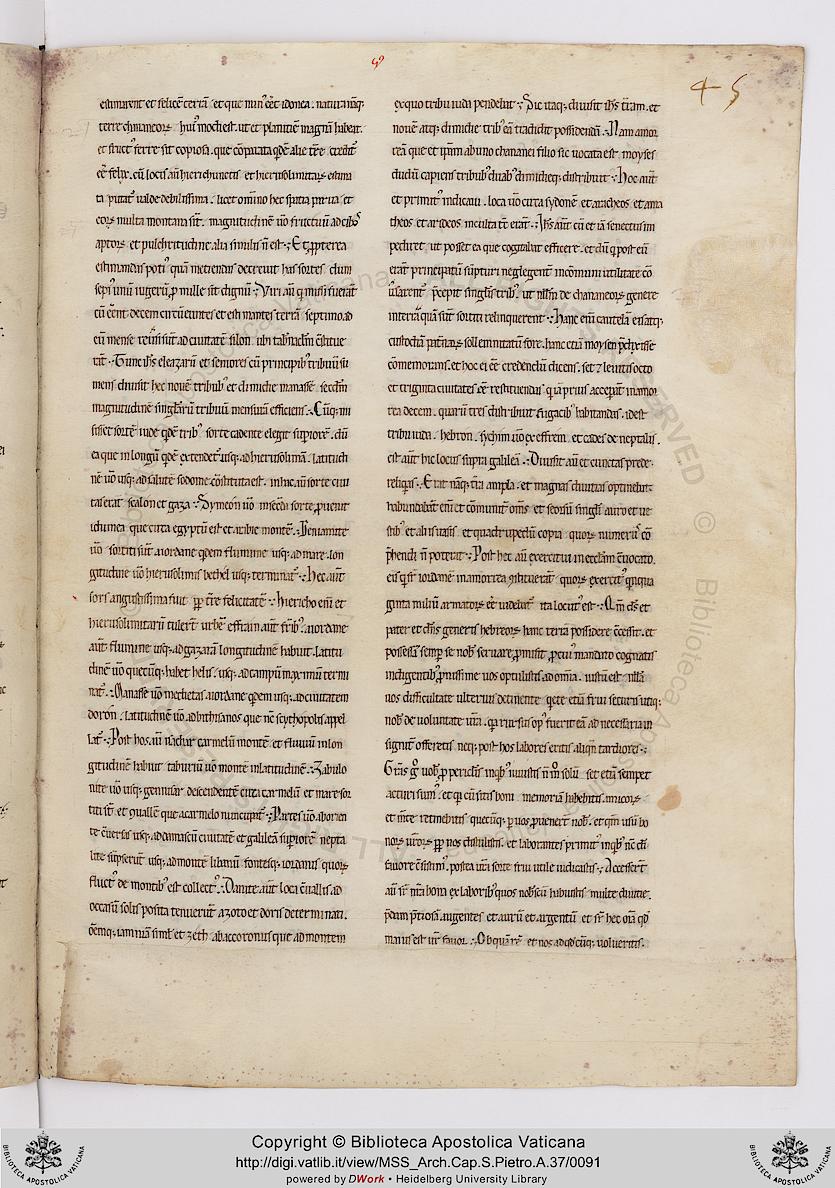 45
estimarent et felicē terrā et que min' eēt idonea. natura nāq;
terre chananeorꝫ hui' modi est. ut et planitiē magnā habeat.
et fruct' ferre sit copiosa. que cōparata qdē alie tr̄e credit̄
eē felix. cū locis aū hierichunetis et hierosolimitarꝫ estima
ta putat̄ ualde debilissima. licet omīno hec spatia parua et
eorꝫ multa montana sit. magnitudinē u̅o fructuū ad cibos
aptorꝫ et pulchritudinē alia similis n̄ est. Et p̱pterea
estimandas poti' quā metiendas decreuit has sortes. dum
sepi' unū iugerū p̱ mille sit dignū. Viri aū q̱ missi fuerant
cū eēnt decem circū euntes et estimantes terrā septimo. ad
eū mense reuersi sunt ad ciuitatē silon. ubi tab̄naclm̄ cōstitue
rāt. Tunc ihs̄ eleazarū et seniores cū principib' tribuū su
mens diuisit hec nouē tribub' et dimidie manassē secdm̄
magnitudinē singlarū tribuū mensurā efficiens. Cūq; mi
sisset sortē iude qdē trib' sorte cadente elegit superiorē. dū
ea que in longū qdē extendet̄ usq; ad hierosolimā. latitudi
nē u̅o usq; ad salutē sodome cōstituta est. in hac aū sorte ciui
tas erat scalon et gaza. Symeon u̅o secda sorte p̱uenit
idumea que circa egyptū est et arabie montē. Beniamite
u̅o sortiti sūt a iordane qdem flumine usq; ad mare. lon
gitudine u̅o hierosolimis bethel usq; terminat̄. Hec aūt
sors angustissima fuit pp̱ tr̄e felicitatē. Hiericho enī et
hierosolimitarū tulerūt urbē effraim aūt trib'. a iordane
aūt flumine usq; ad gazarā longitudinē habuit. latitu
dinē u̅o quecūq; habet helis. usq; ad campū maximū termi
nat̄. Manassē u̅o medietas a iordane qdem usq; ad ciuitatem
doron. latitudinē u̅o ad bithsanos que nc̄ scythopolis appel
lat̄. Post hos aū isachar carmelū montē et fluuiū in lon
gitudinē habuit taburiū u̅o montē in latitudinē. Zabulo
nite u̅o usq; gennisar descendentē circa carmelū et mare sor
titi sūt et quallē que a carmelo nuncupat̄. Partes u̅o ab orien
te cōuersas usq; ad damascū ciuitatē et galileā superiorē nepta
lite sūpserunt usq; ad montē libanū fontesq; iordanis quorꝫ
fluct' de montib' est collect'. Danite aūt loca cōuallis ad
occasū solis posita tenuerūt azoto et doris determinati.
oēmq; iamniā simł et zeth ab accoronus que ad montem
ex quo tribu iuda pendebat. Sic itaq; diuisit ihs̄ trām. et
nouē atq; dimidie trib' eā tradidit possidendā. Nam amor
reā que et ipam ab uno chananei filio sic uocata est. moyses
dudū capiens tribub' duab' dimidieq; distribuit. Hoc aūt
et primit' indicaui. loca u̅o circa sydonē et aracheos et ama
theos et arideos inculta tc̄ erant. Ihs̄ aūt cū et iā senectus im
pediret. ut posset ea que cogitabat efficere. et dū q̱ post eū
erant principatū sūpturi neglegent̄ in cōmuni utilitate cō
uersarent̄. p̱cepit singlis trib'. ut nullm̄ de chananeorꝫ genere
in terra quā sūt sortiti relinquerent. Hanc enī cautelā eis atq;
custodiā patriarꝫ sollemnitatū fore. hanc etiā moysen p̱dixisse
cōmemorans. et hoc ei eē credendū dicens. set 7 leuitis octo
et triginta ciuitates eē restituendas q̱a prius acceperāt in amor
rea decem. quarū tres distribuit fugacib' habitandas. idest
tribu iuda. hebron. sychim u̅o ex effrem. et cades de neptalis.
est aūt hic locus supra galileā. Diuisit aū et cunctas prede
reliqas. Erat nāq; trā ampla. et magnas diuitias optinebat.
habundabāt enī et cōmunit' om̄s et seorsū singli auro et ue
stib' et aliis uasis. et quadrupedū copia quorꝫ numer' cō
p̱hendi n̄ poterat. Post hec aū exercitui in eccłiam cōuocato.
eis q̱ sr̄ iordanē in amorrea cōstituerāt quorꝫ exercit' qn̄qua
ginta miliū armatorꝫ eē uidebat̄ ita locut' est. Qm̄ ds̄ et
pater et dn̄s generis hebreorꝫ hanc terrā possidere cōcessit. et
possessā semper se nob' seruare p̱misit. p̱ cui' mandato cognatis
indigentib' p̱ntissime uos optulistis ad omnia. iustū est nullā
uos difficultate ulterius detinente qete etiā frui securis utiq;
nob' de uoluntate ur̄a. q̱a rursus op' fuerit eā ad necessaria in
signit' offeretis neq; post hos labores eritis aliqn̄ tardiores.
Grās g̊ uob' p̱ periclis inqb' fuistis n̄ m̊ solū. set etiā semper
acturi sum'. et q̱a cū sitis boni memoriā habebitis. amicorꝫ
et mēte retinebitis quecūq; p̱ uos p̱uenerūt nob'. et qm̄ usū bo
norꝫ ur̄orꝫ pp̱ nos distulistis. et laborantes primit' inqb' nc̄ di
fauore cēsistim'. postea ura sorte frui utile iudicastis. Accesserūt
aū sr̄ nr̄a bona ex laborib' quos nobiscū habuistis multe diuitie.
p̱dam p̱tiosā. augentes et aurū et argentū et sr̄ hec oīa qd
maius est ur̄ fauor. Ob quā rē et nos ad qd cūq; uolueritis.
Copyright © Biblioteca Apostolica Vaticana
http://digi.vatlib.it/view/MSS_Arch.Cap.S.Pietro.A.37/0091
powered by DWork • Heidelberg University Library